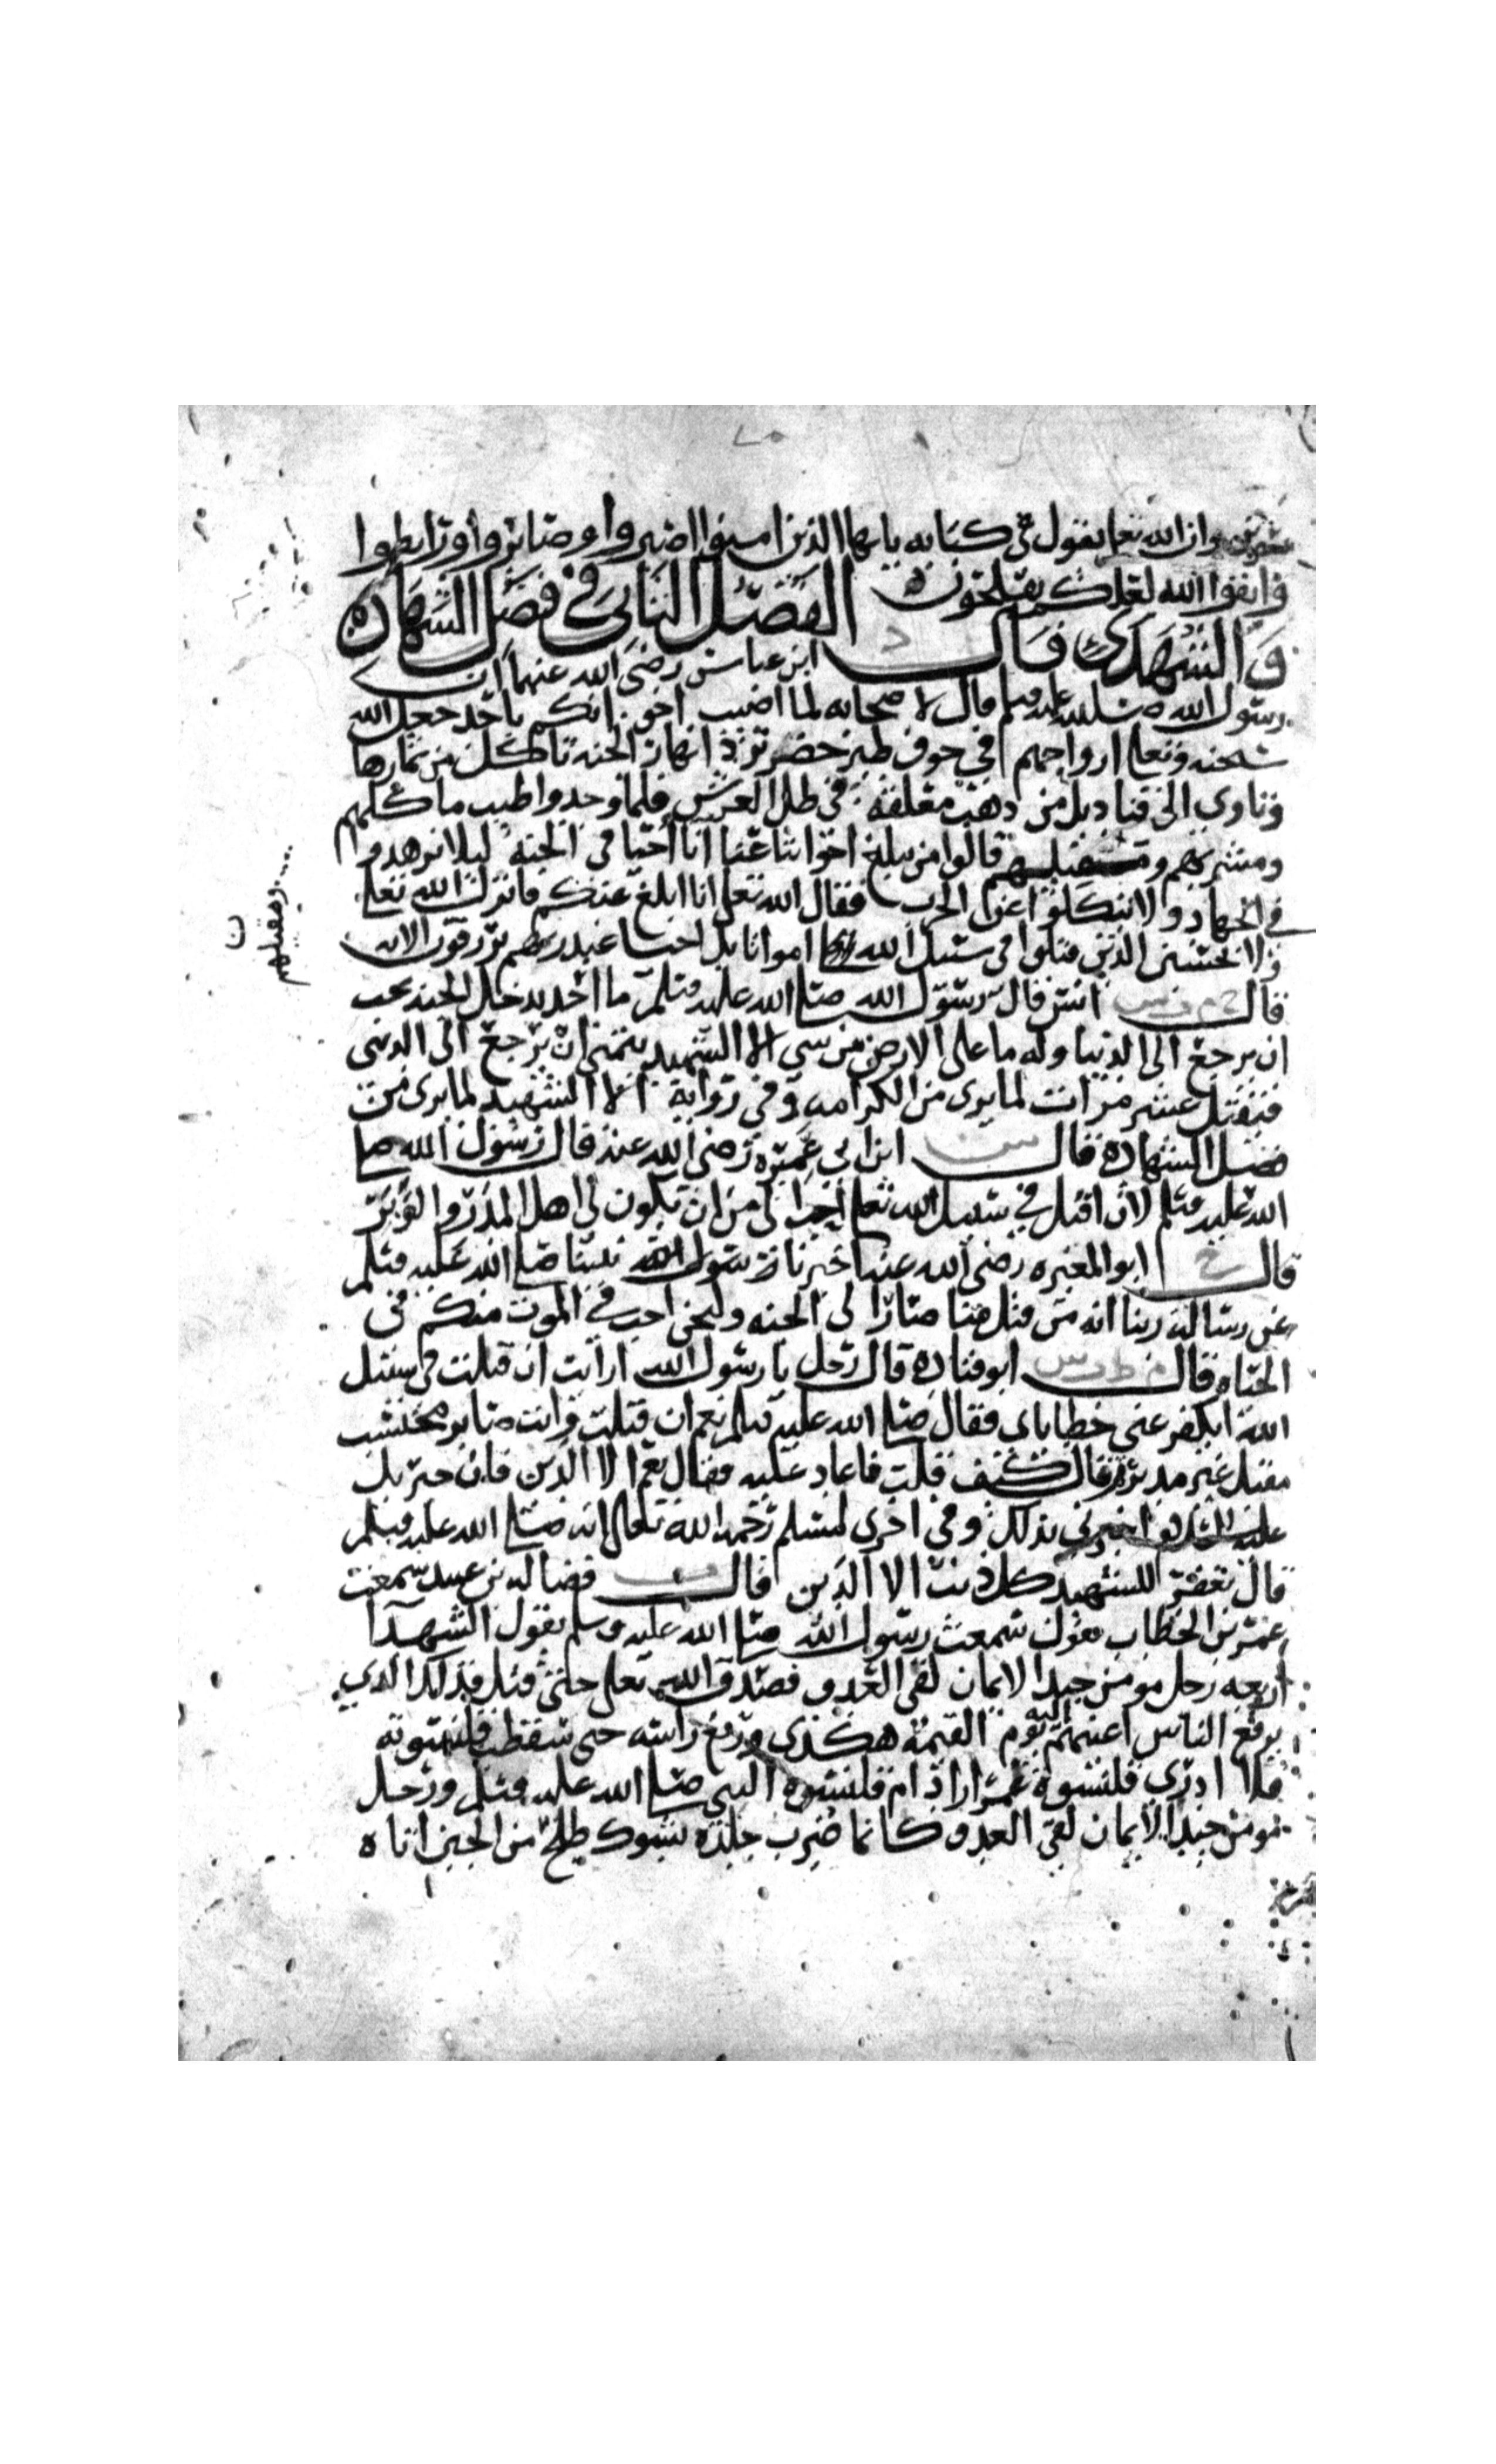 يسرين وان الله تعا يقول في كتابه يايها الذين امنوا اصبروا وصابروا ورابطوا
واتقوا الله لعلكم تفلحون الفصل الثاني في فضل الشهادة
والشهدى قال د ابن عباس رضي الله عنهما ان
رسول الله صلى الله عليه وسلم قال لاصحابه لما اصيب اخوانكم باحد جعل الله
سبحنه وتعا ارواحهم في جوف طير خضر ترد انهار الجنه تاكل من ثمارها
وتاوي الى قناديل من ذهب معلقة في ظل العرش فلما وجدوا طيب ماكلهم
ومشربهم ومقيلهم قالوا من يبلغ اخواننا عنا انا احيا في الجنة ليلا يزهدوا
في الجهاد ولا ينكلوا عن الحرب فقال الله تعلى انا ابلغ عنكم فانزل الله تعلى
ولا تحسبن الذين قتلوا في سبيل الله امواتا بل احيا عند ربهم يرزقون الايه
قال خ م ت س انس قال رسول الله صلى الله عليه وسلم ما احد يدخل الجنه يحب
ان يرجع الى الدنيا وله ما على الارض من شي الا الشهيد يتمنى ان يرجع الى الدنيى
فيقتل عشر مرات لما يرى من الكرامه وفي رواية الا الشهيد لما يرى من
فضل الشهادة قال س ابن ابي عميره رضي الله عنه قال رسول الله صلى
الله عليه وسلم لان اقتل في سبيل الله تعا احب الي من ان يكون لي اهل المدر والوبر
قال خ ابو المغيره رضي الله عنه اخبرنا رسول الله نبينا صلى الله عليه وسلم
عن رسالة ربنا انه من قتل منا صار الى الجنه ولنحن احب في الموت منكم في
الحياه قال م ط ت س ابو قتاده قال رجل يا رسول الله ارايت ان قتلت في سبيل
الله ايكفر عني خطاياي فقال صلى الله عليه وسلم نعم ان قتلت وانت صابر محتسب
مقبل غير مدبر ثم قال كيف قلت فاعاد عليه فقال نعم الا الدين فان جبريل
عليه السلام اخبرني بذلك وفي اخرى لمسلم رحمه الله تعالى انه صلى الله عليه وسلم
قال يغفر للشهيد كل ذنب الا الدين قال ت فضاله بن عبيد سمعت
عمر بن الخطاب يقول سمعت رسول الله صلى الله عليه وسلم يقول الشهدآ
اربعه رجل مومن جيد الايمان لقي العدو فصدق الله تعلى حتى قتل فذلك الذي
يرفع الناس اعينهم اليه يوم القيمة هكذى ورفع راسه حتى سقطت قلنسوته
فلا ادري قلنسوة عمر اراد ام قلنسوة النبي صلى الله عليه وسلم ورجل
مومن جيد الايمان لقي العدو كانما ضرب جلده بشوك طلح من الجبن اتاه
ومقيلهم
ن